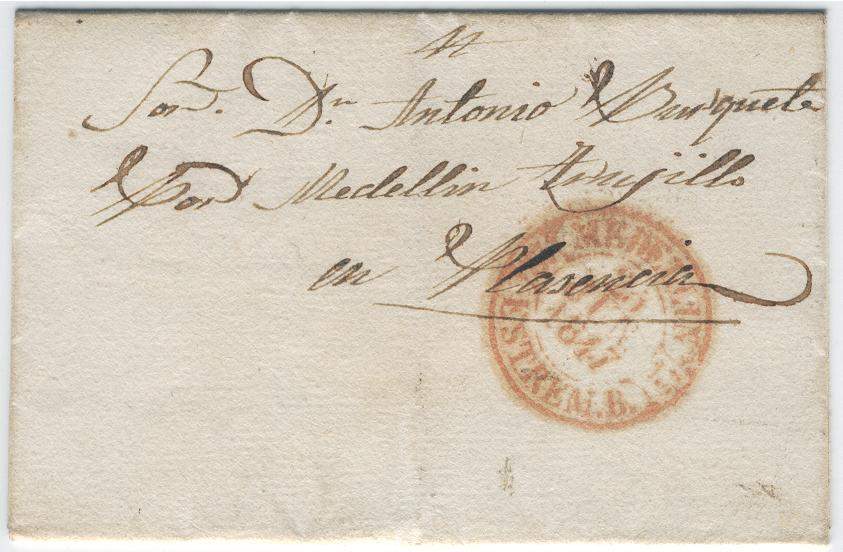 Sor. Dn. Antonio Burquete
Por Medellin Trujillo
en Plasencia
1847
ESTREM.B.